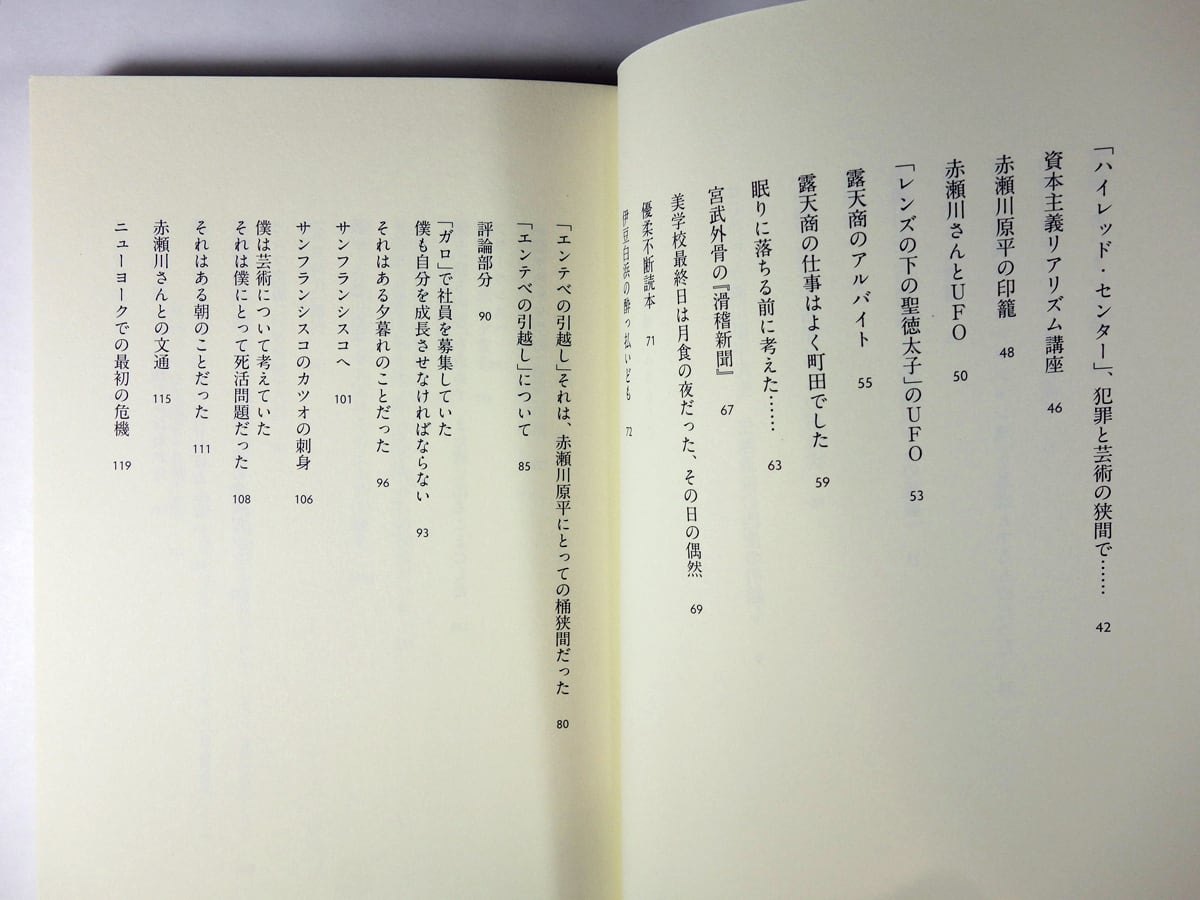 「ハイレッド・センター」、犯罪と芸術の狭間で…… 42
資本主義リアリズム講座 46
赤瀬川原平の印籠 48
赤瀬川さんとUFO 50
「レンズの下の聖徳太子」のUFO 53
露天商のアルバイト 55
露天商の仕事はよく町田でした 59
眠りに落ちる前に考えた…… 63
宮武外骨の『滑稽新聞』 67
美学校最終日は月食の夜だった、その日の偶然 69
優柔不断読本 71
伊豆白浜の酔っ払いども 72
「エンテベの引越し」それは、赤瀬川原平にとっての桶狭間だった 80
「エンテベの引越し」について 85
評論部分 90
「ガロ」で社員を募集していた
僕も自分を成長させなければならない 93
それはある夕暮れのことだった 96
サンフランシスコへ 101
サンフランシスコのカツオの刺身 106
僕は芸術について考えていた
それは僕にとって死活問題だった 108
それはある朝のことだった 111
赤瀬川さんとの文通 115
ニューヨークでの最初の危機 119